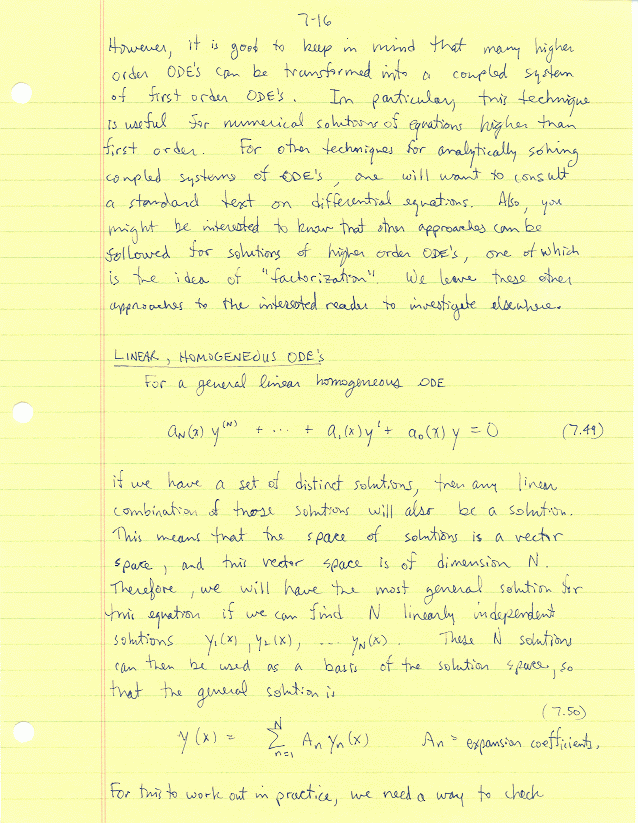 7-16
However, it is good to keep in mind that many higher
order ODE's can be transformed into a coupled system
of first order ODE's. In particular, this technique
is useful for numerical solutions of equations higher than
first order. For other techniques for analytically solving
coupled systems of ODE's, one will want to consult
a standard text on differential equations. Also, you
might be interested to know that other approaches can be
followed for solutions of higher order ODE's, one of which
is the idea of "factorization". We leave these other
approaches to the interested reader to investigate elsewhere.
LINEAR, HOMOGENEOUS ODE's
For a general linear homogeneous ODE
a_N(x) y^(N) + ... + a_1(x) y' + a_0(x) y = 0 (7.49)
if we have a set of distinct solutions, then any linear
combination of those solutions will also be a solution.
This means that the space of solutions is a vector
space, and this vector space is of dimension N.
Therefore, we will have the most general solution for
this equation if we can find N linearly independent
solutions y_1(x), y_2(x), ... y_N(x). These N solutions
can then be used as a basis of the solution space, so
that the general solution is
(7.50)
y(x) = ∑_{n=1}^{N} A_n y_n(x) A_n = expansion coefficients.
For this to work out in practice, we need a way to check